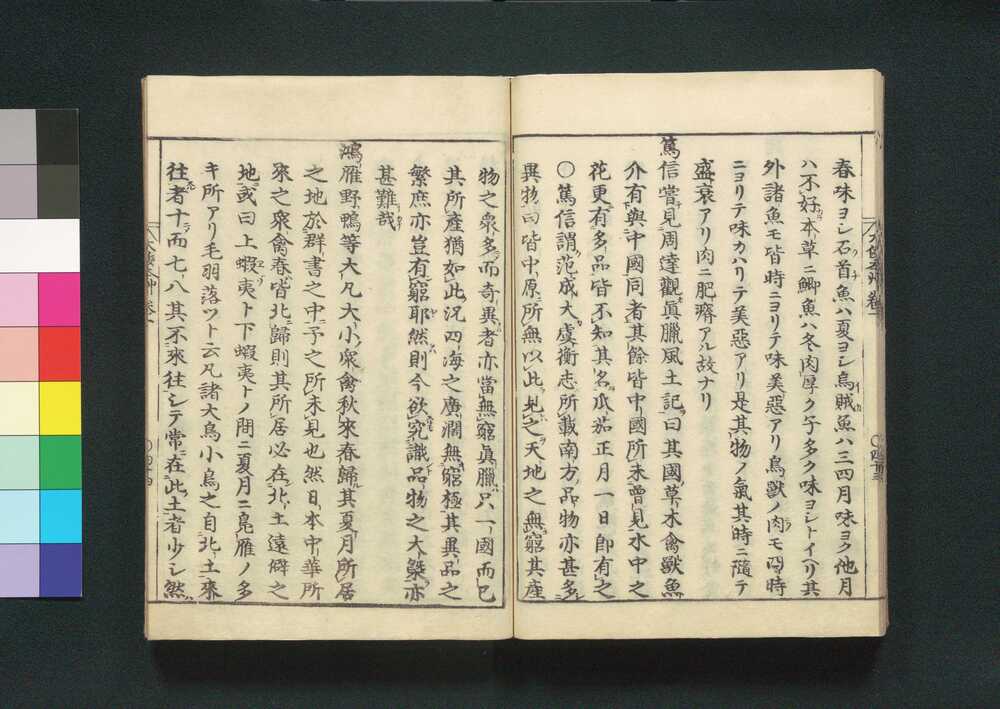 春味ヨシ石首魚ハ夏ヨシ烏賊魚ハ三四月味ヨク他月
ハ不好本草ニ鯽魚ハ冬肉厚ク子多ク味ヨシトイリ其
外諸魚モ皆時ニヨリテ味美惡アリ鳥獸ノ肉モ同時
ニヨリテ味カハリテ美惡アリ是其物ノ氣其時ニ隨テ
盛衰アリ肉ニ肥瘠アル故ナリ
篤信嘗見周達觀眞臘風土記曰其國草木禽獸魚
介有與中國同者其餘皆中國所未曾見水中之
花更有多品皆不知其名瓜茄正月一日卽有之
〇篤信謂范成大虞衡志所載南方品物亦甚多
異物曰皆中原所無以此見之天地之無窮其產
物之衆多而奇異者亦當無窮眞臘只一國而已
其所產猶如此況四海之廣濶無窮極其異品之
繁庶亦豈有窮耶然則今欲究識品物之大槩亦
甚難哉
鴻雁野鴨等大凡大小衆禽秋來春歸其夏月所居
之地於群書之中予之所未見也然日本中華所
來之衆禽春皆北歸則其所居必在北土遠僻之
地或曰上蝦夷ト下蝦夷トノ間ニ夏月ニ鳬雁ノ多
キ所アリ毛羽落ツト云凡諸大鳥小鳥之自北土來
往者十而七八其不來往シテ常在此土者少シ然